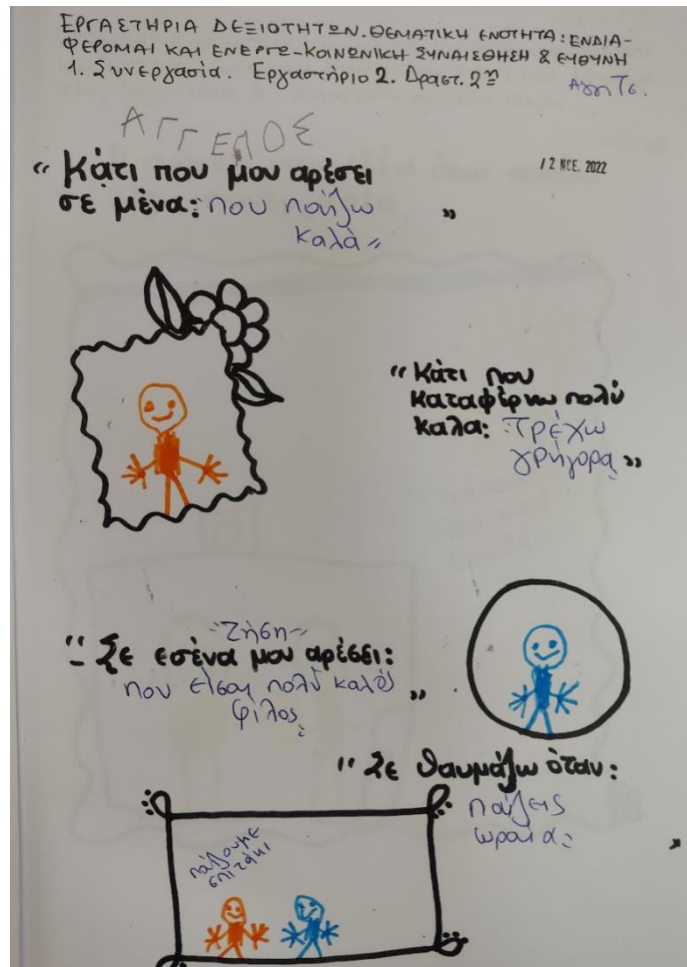 ΕΡΓΑΣΤΗΡΙΑ ΔΕΞΙΟΤΗΤΩΝ. ΘΕΜΑΤΙΚΗ ΕΝΟΤΗΤΑ: ΕΝΔΙΑ-
ΦΕΡΟΜΑΙ ΚΑΙ ΕΝΕΡΓΩ-ΚΟΙΝΩΝΙΚΗ ΣΥΝΑΙΣΘΗΣΗ & ΕΥΘΥΝΗ
1. Συνεργασία. Εργαστήριο 2. Δραστ. 2η
ΑΓΓΕΛΟΣ
12 ΝΟΕ. 2022
“Κάτι που μου αρέσει
σε μένα: που παίζω
καλά”
“Κάτι που
καταφέρνω πολύ
καλά: Τρέχω
γρήγορα”
Ζήση
“Σε εσένα μου αρέσει:
που είσαι πολύ καλός
φίλος”
“Σε θαυμάζω όταν:
παίζεις
ωραία”
παίζουμε
σπιτάκι